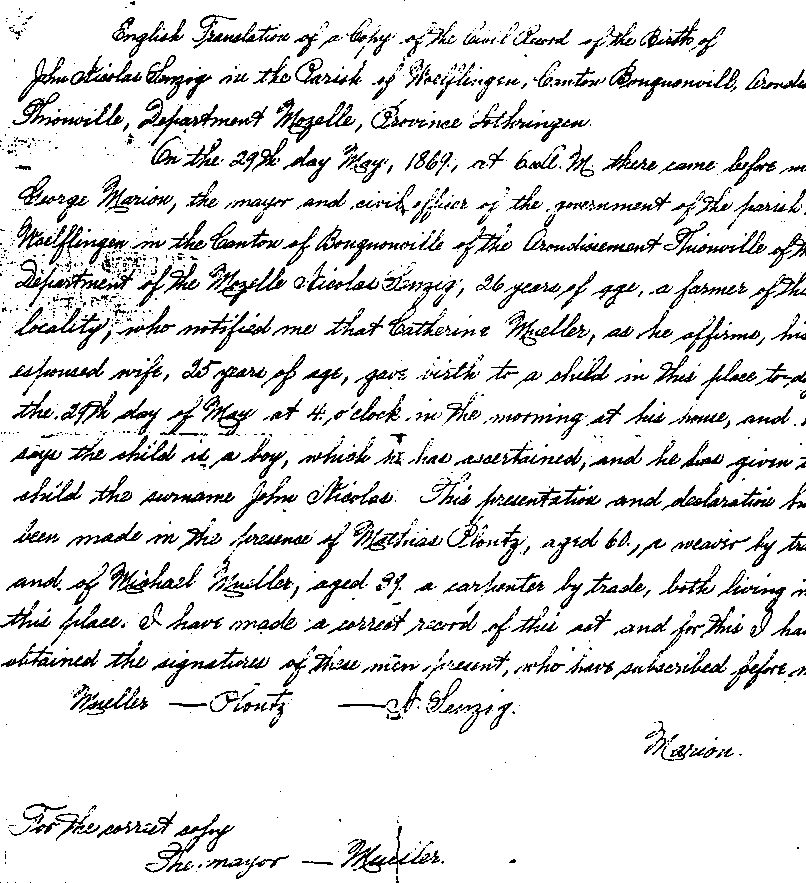 English Translation of a Copy of the Civil Record of the Birth of
John Nicolas Senzig in the Parish of Woelflingen, Canton Bouquonvill, Arondis
Thionville, Department Mozelle, Province Lothringen.
On the 29th day May, 1869, at 6 a.M. there came before m
George Marion, the mayor and civil officer of the government of the parish
Woelflingen in the Canton of Bouquonville of the Arondissement Thionville of th
Department of the Mozelle Nicolas Senzig, 26 years of age, a farmer of this
locality, who notified me that Catherine Mueller, as he affirms, his
espoused wife, 25 years of age, gave birth to a child in this place to-da
the 29th day of May at 4 o'clock in the morning at his house, and
says the child is a boy, which he has ascertained, and he has given t
child the surname John Nicolas. This presentation and declaration ha
been made in the presence of Mathias Plontz, aged 60, a weaver by tra
and of Michael Mueller, aged 39 a carpenter by trade, both living in
this place. I have made a correct record of this act and for this I ha
obtained the signatures of these men present, who have subscribed before m
Mueller — Plontz — N. Senzig.
Marion.
For the correct copy
The mayor — Mueller.